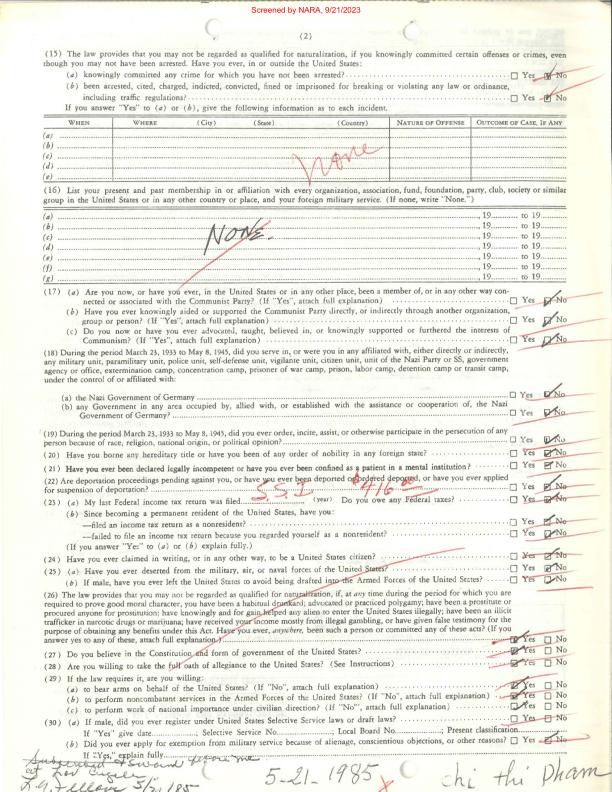 Screened by NARA, 9/21/2023
(2)
(15) The law provides that you may not be regarded as qualified for naturalization, if you knowingly committed certain offenses or crimes, even
though you may not have been arrested. Have you ever, in or outside the United States:
(a) knowingly committed any crime for which you have not been arrested? ☐ Yes ☑ No
(b) been arrested, cited, charged, indicted, convicted, fined or imprisoned for breaking or violating any law or ordinance,
including traffic regulations? ☐ Yes ☑ No
If you answer "Yes" to (a) or (b), give the following information as to each incident.
WHEN WHERE (City) (State) (Country) NATURE OF OFFENSE OUTCOME OF CASE, IF ANY
(a)
(b)
(c) None
(d)
(e)
(16) List your present and past membership in or affiliation with every organization, association, fund, foundation, party, club, society or similar
group in the United States or in any other country or place, and your foreign military service. (If none, write "None.")
(a) , 19 to 19
(b) , 19 to 19
(c) NONE. , 19 to 19
(d) , 19 to 19
(e) , 19 to 19
(f) , 19 to 19
(g) , 19 to 19
(17) (a) Are you now, or have you ever, in the United States or in any other place, been a member of, or in any other way con-
nected or associated with the Communist Party? (If "Yes", attach full explanation) ☐ Yes ☑ No
(b) Have you ever knowingly aided or supported the Communist Party directly, or indirectly through another organization,
group or person? (If "Yes", attach full explanation) ☐ Yes ☑ No
(c) Do you now or have you ever advocated, taught, believed in, or knowingly supported or furthered the interests of
Communism? (If "Yes", attach full explanation) ☐ Yes ☑ No
(18) During the period March 23, 1933 to May 8, 1945, did you serve in, or were you in any affiliated with, either directly or indirectly,
any military unit, paramilitary unit, police unit, self-defense unit, vigilante unit, citizen unit, unit of the Nazi Party or SS, government
agency or office, extermination camp, concentration camp, prisoner of war camp, prison, labor camp, detention camp or transit camp,
under the control of or affiliated with:
(a) the Nazi Government of Germany ☐ Yes ☑ No
(b) any Government in any area occupied by, allied with, or established with the assistance or cooperation of, the Nazi
Government of Germany? ☐ Yes ☑ No
(19) During the period March 23, 1933 to May 8, 1945, did you ever order, incite, assist, or otherwise participate in the persecution of any
person because of race, religion, national origin, or political opinion? ☐ Yes ☑ No
(20) Have you borne any hereditary title or have you been of any order of nobility in any foreign state? ☐ Yes ☑ No
(21) Have you ever been declared legally incompetent or have you ever been confined as a patient in a mental institution? ☐ Yes ☑ No
(22) Are deportation proceedings pending against you, or have you ever been deported or ordered deported, or have you ever applied
for suspension of deportation? ☐ Yes ☑ No
(23) (a) My last Federal income tax return was filed S.S.I (year) Do you owe any Federal taxes? ☐ Yes ☑ No
(b) Since becoming a permanent resident of the United States, have you:
—filed an income tax return as a nonresident? ☐ Yes ☑ No
—failed to file an income tax return because you regarded yourself as a nonresident? ☐ Yes ☑ No
(If you answer "Yes" to (a) or (b) explain fully.)
(24) Have you ever claimed in writing, or in any other way, to be a United States citizen? ☐ Yes ☑ No
(25) (a) Have you ever deserted from the military, air, or naval forces of the United States? ☐ Yes ☑ No
(b) If male, have you ever left the United States to avoid being drafted into the Armed Forces of the United States? ☐ Yes ☑ No
(26) The law provides that you may not be regarded as qualified for naturalization, if, at any time during the period for which you are
required to prove good moral character, you have been a habitual drunkard; advocated or practiced polygamy; have been a prostitute or
procured anyone for prostitution; have knowingly and for gain helped any alien to enter the United States illegally; have been an illicit
trafficker in narcotic drugs or marijuana; have received your income mostly from illegal gambling, or have given false testimony for the
purpose of obtaining any benefits under this Act. Have you ever, anywhere, been such a person or committed any of these acts? (If you
answer yes to any of these, attach full explanation.) Yes ☐ No
(27) Do you believe in the Constitution and form of government of the United States? ☑ Yes ☐ No
(28) Are you willing to take the full oath of allegiance to the United States? (See Instructions) ☑ Yes ☐ No
(29) If the law requires it, are you willing:
(a) to bear arms on behalf of the United States? (If "No", attach full explanation) ☑ Yes ☐ No
(b) to perform noncombatant services in the Armed Forces of the United States? (If "No", attach full explanation) ☑ Yes ☐ No
(c) to perform work of national importance under civilian direction? (If "No", attach full explanation) ☑ Yes ☐ No
(30) (a) If male, did you ever register under United States Selective Service laws or draft laws? ☐ Yes ☐ No
If "Yes" give date ; Selective Service No. ; Local Board No. ; Present classification
(b) Did you ever apply for exemption from military service because of alienage, conscientious objections, or other reasons? ☐ Yes No
If "Yes," explain fully
5-21-1985 x chi thi Pham